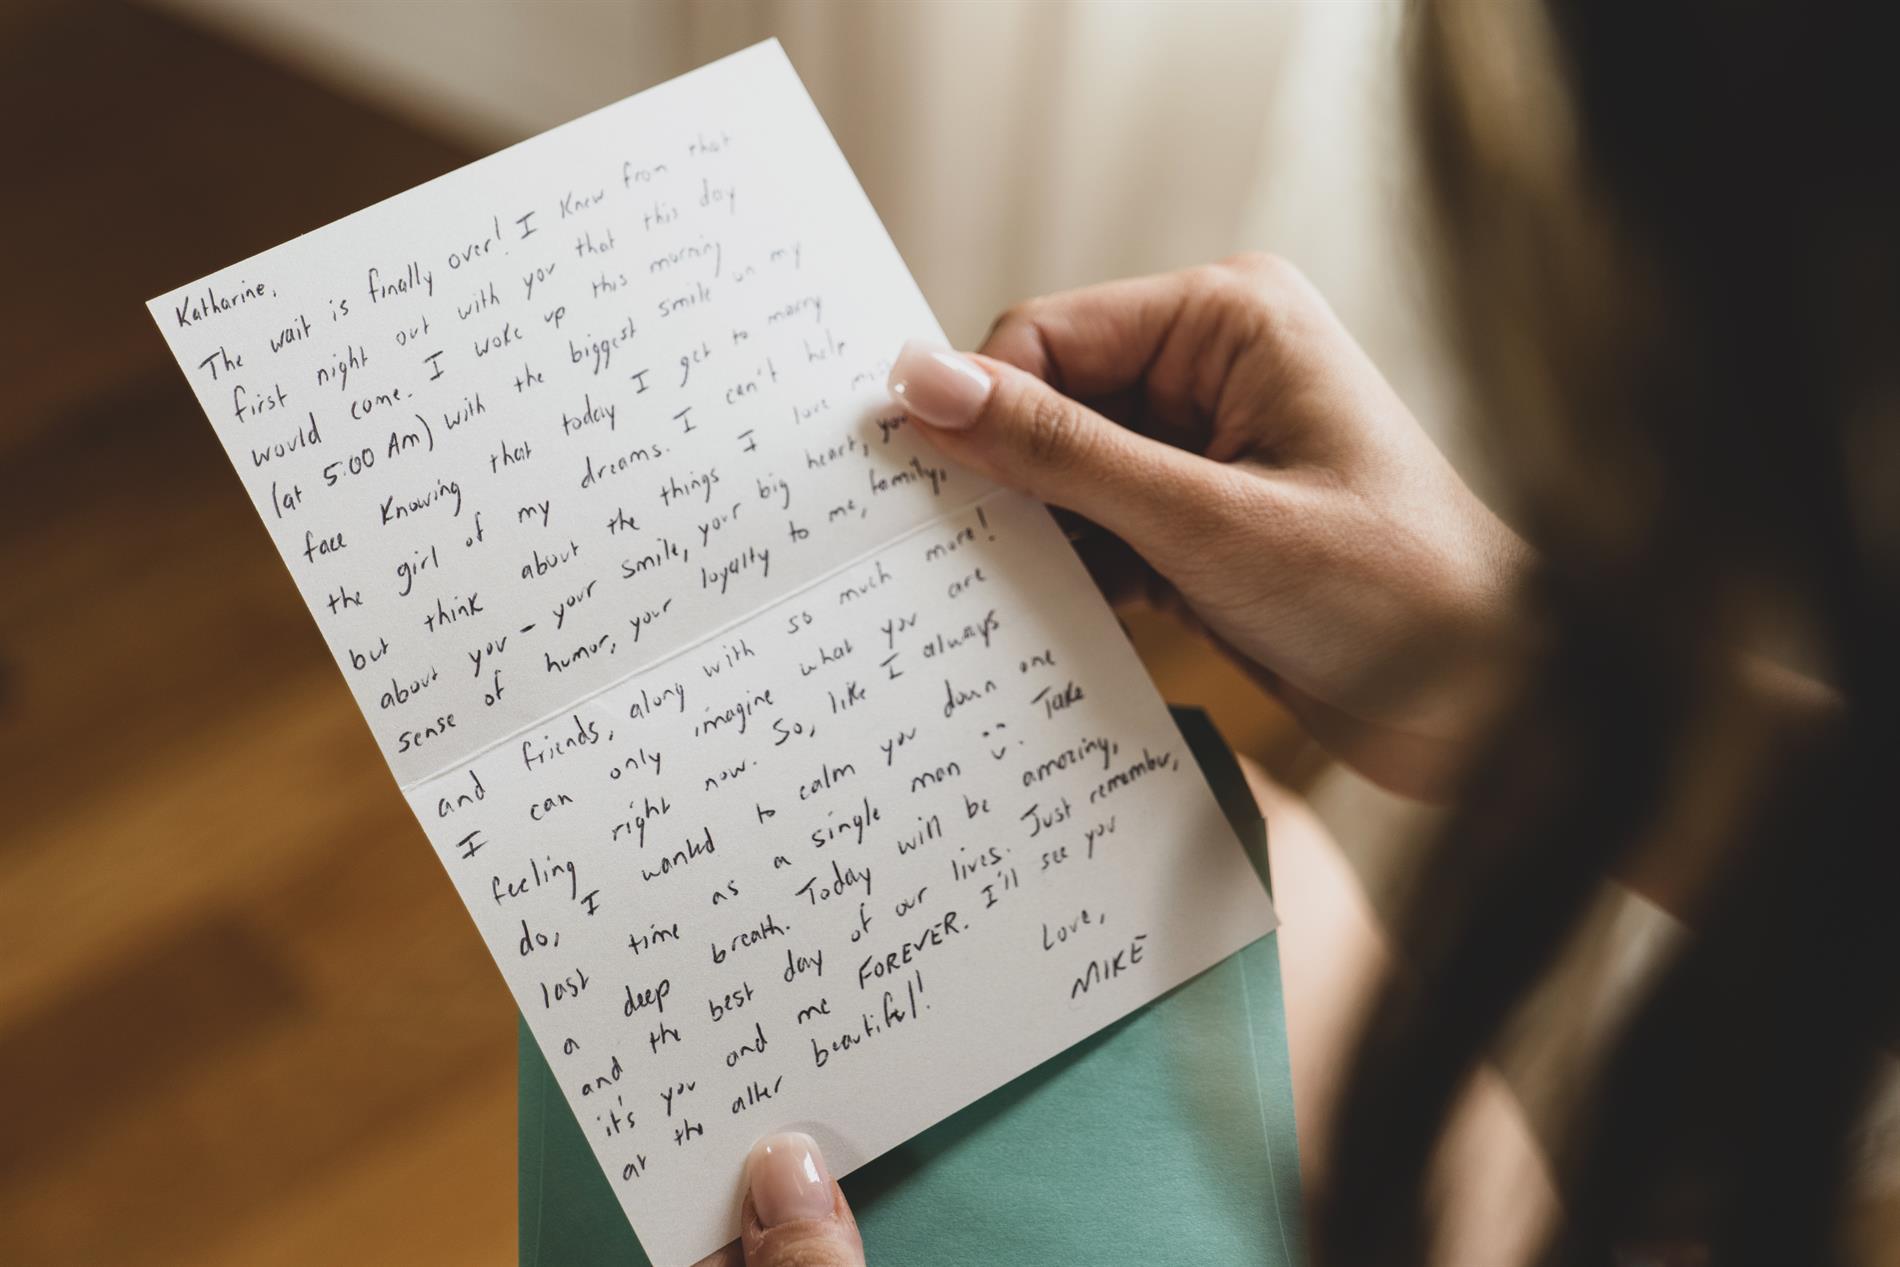 Katharine,
The wait is finally over! I knew from that
first night out with you that this day
would come. I woke up this morning
(at 5:00 Am) with the biggest smile on my
face knowing that today I get to marry
the girl of my dreams. I can't help
but think about the things I love most
about you - your smile, your big heart, your
sense of humor, your loyalty to me, family,
and friends, along with so much more!
I can only imagine what you are
feeling right now. So, like I always
do, I wanted to calm you down one
last time as a single man :). Take
a deep breath. Today will be amazing,
and the best day of our lives. Just remember,
it's you and me FOREVER. I'll see you
at the alter beautiful!
Love,
MIKE